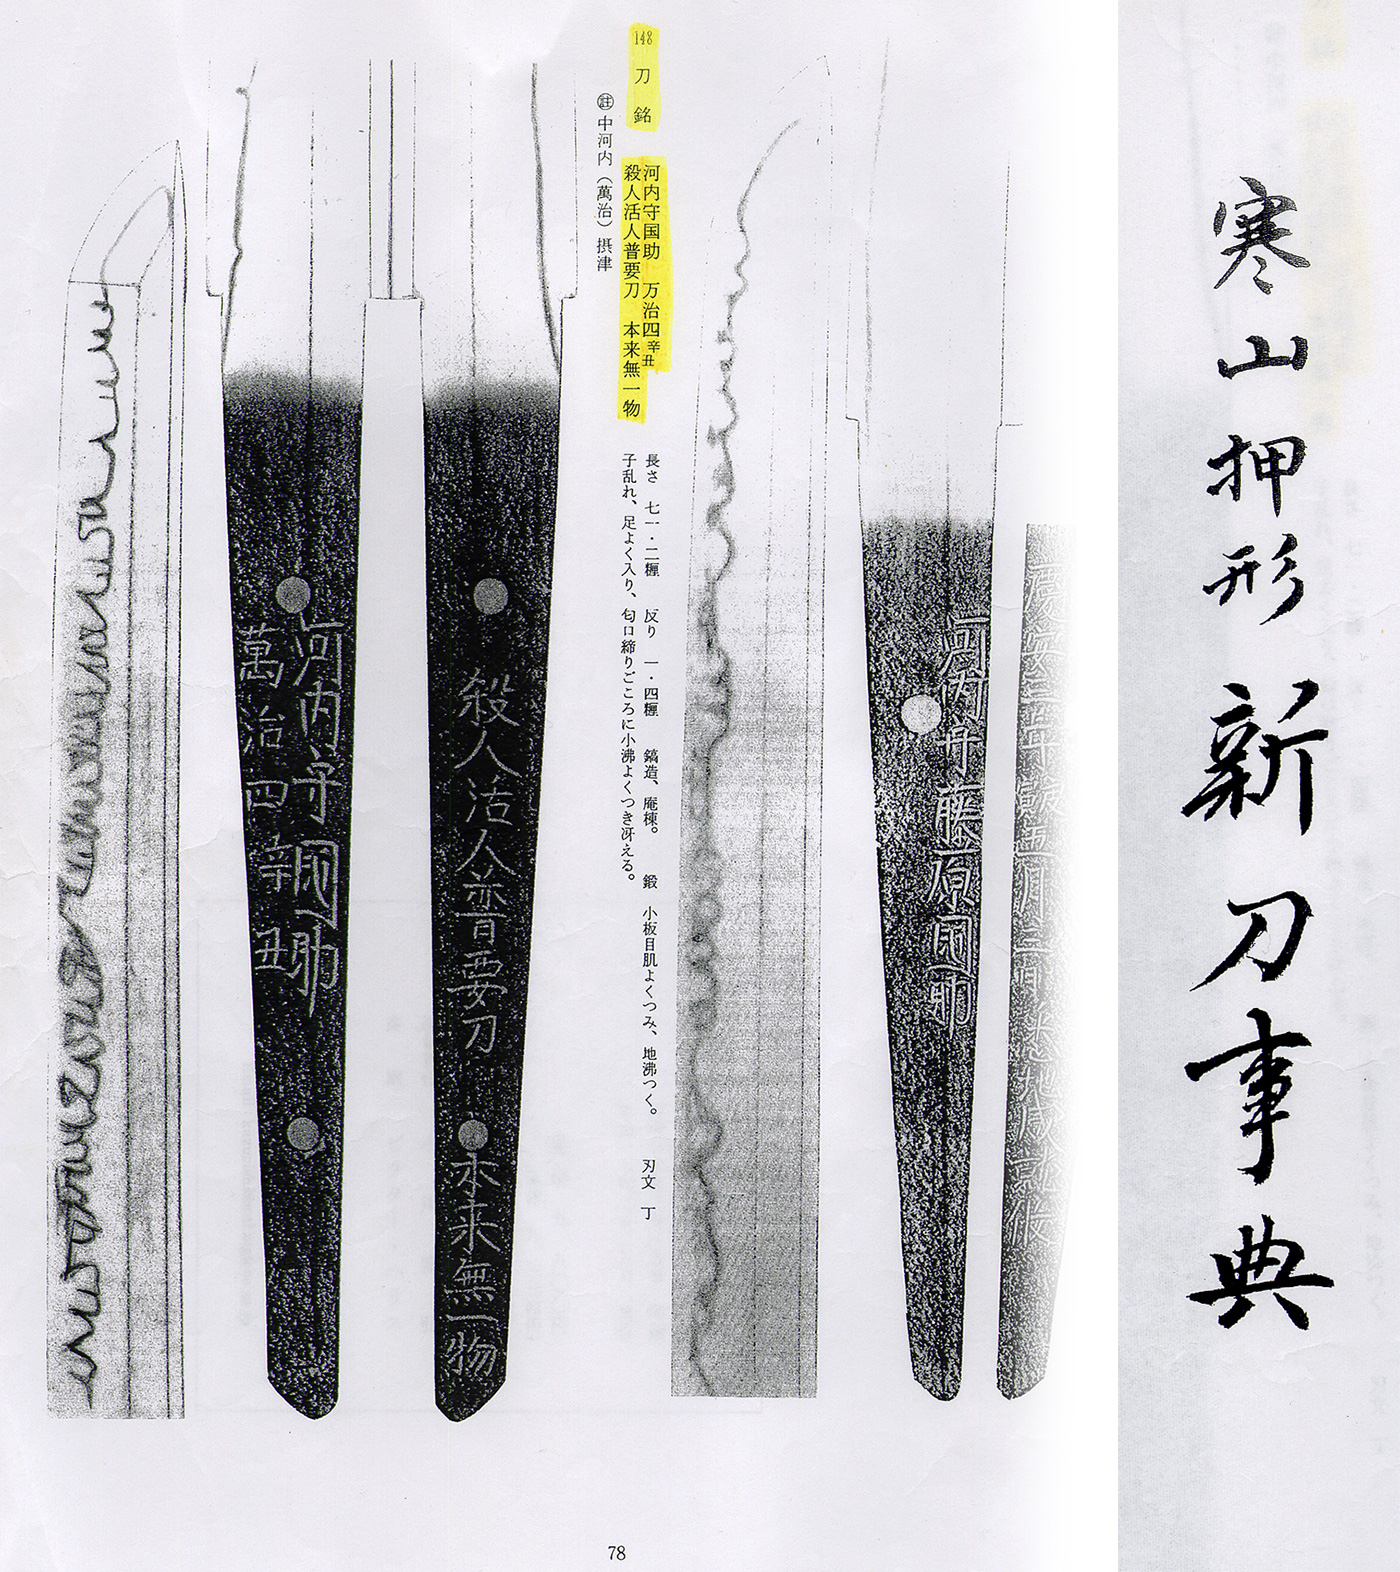 寒山押形 新刀事典
河内守藤原國助
148 刀 銘 河内守国助 万治四辛丑
殺人活人普要刀 本来無一物
㊟中河内（萬治）摂津
長さ 七一・二糎 反り 一・四糎 鎬造、庵棟。 鍛 小板目肌よくつみ、地沸つく。 刃文 丁
子乱れ、足よく入り、匂口締りごころに小沸よくつき冴える。
殺人活人普要刀 本来無一物
河内守國助
萬治四辛丑
78